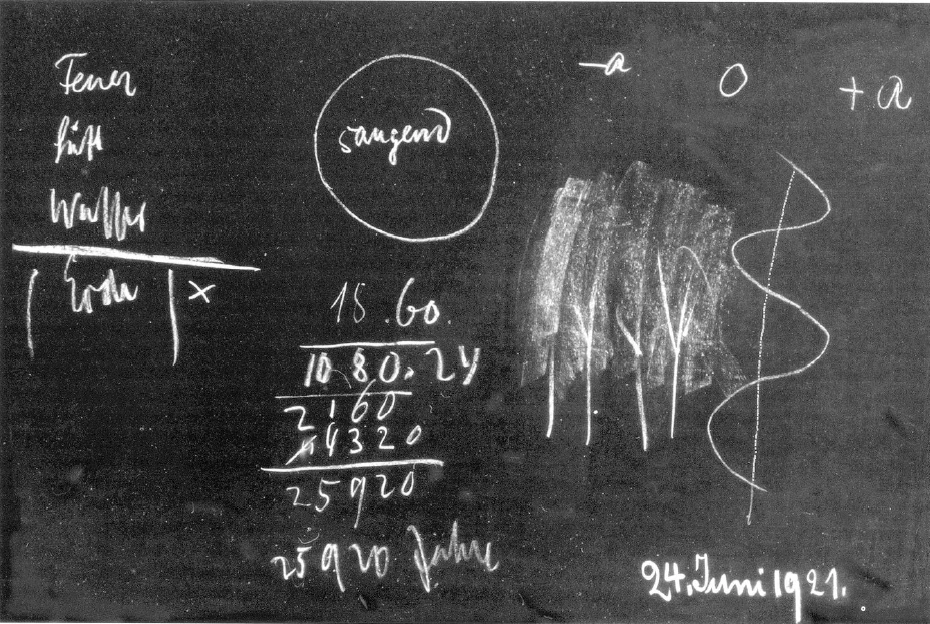 Feuer
Luft
Wasser
Erde x
saugend
18.60.
1080.24
2160
4320
25920
25920 Jahre
-a 0 +a
24. Juni 1921.